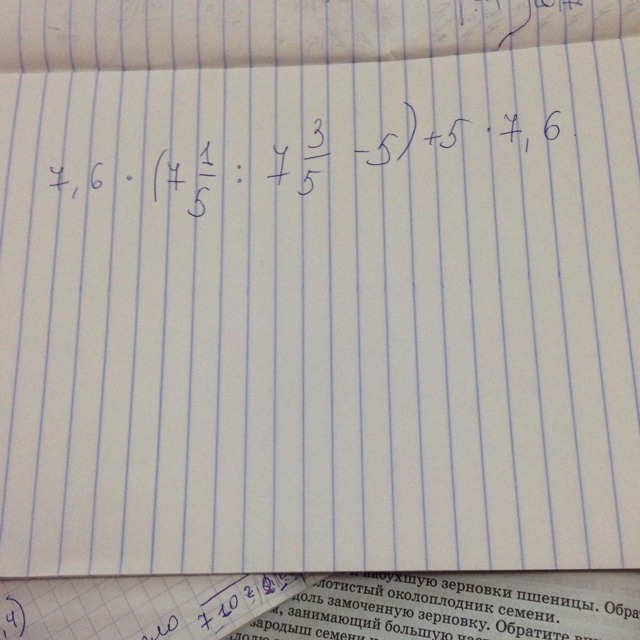 7,6 · (7 1/5 : 7 3/5 - 5) + 5 · 7,6
4)
7 10
набухшую зерновки пшеницы. Обра
отистый околоплодник семени.
оль замоченную зерновку. Обратите
, занимающий большую
ародыш семени